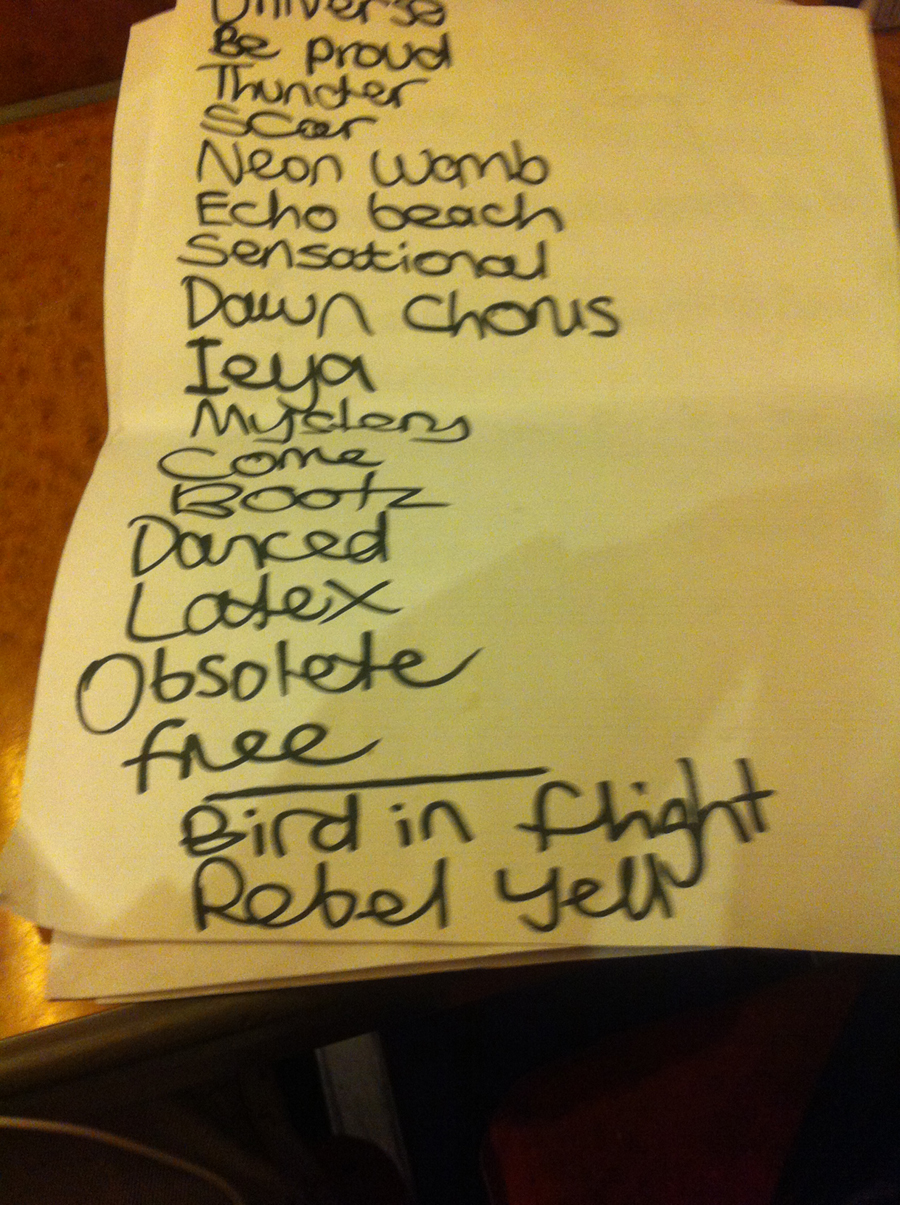 Universe
Be proud
Thunder
Scar
Neon womb
Echo beach
Sensational
Dawn chorus
Ieya
Mystery
Come
Bootz
Danced
Latex
Obsolete
free
Bird in flight
Rebel yell